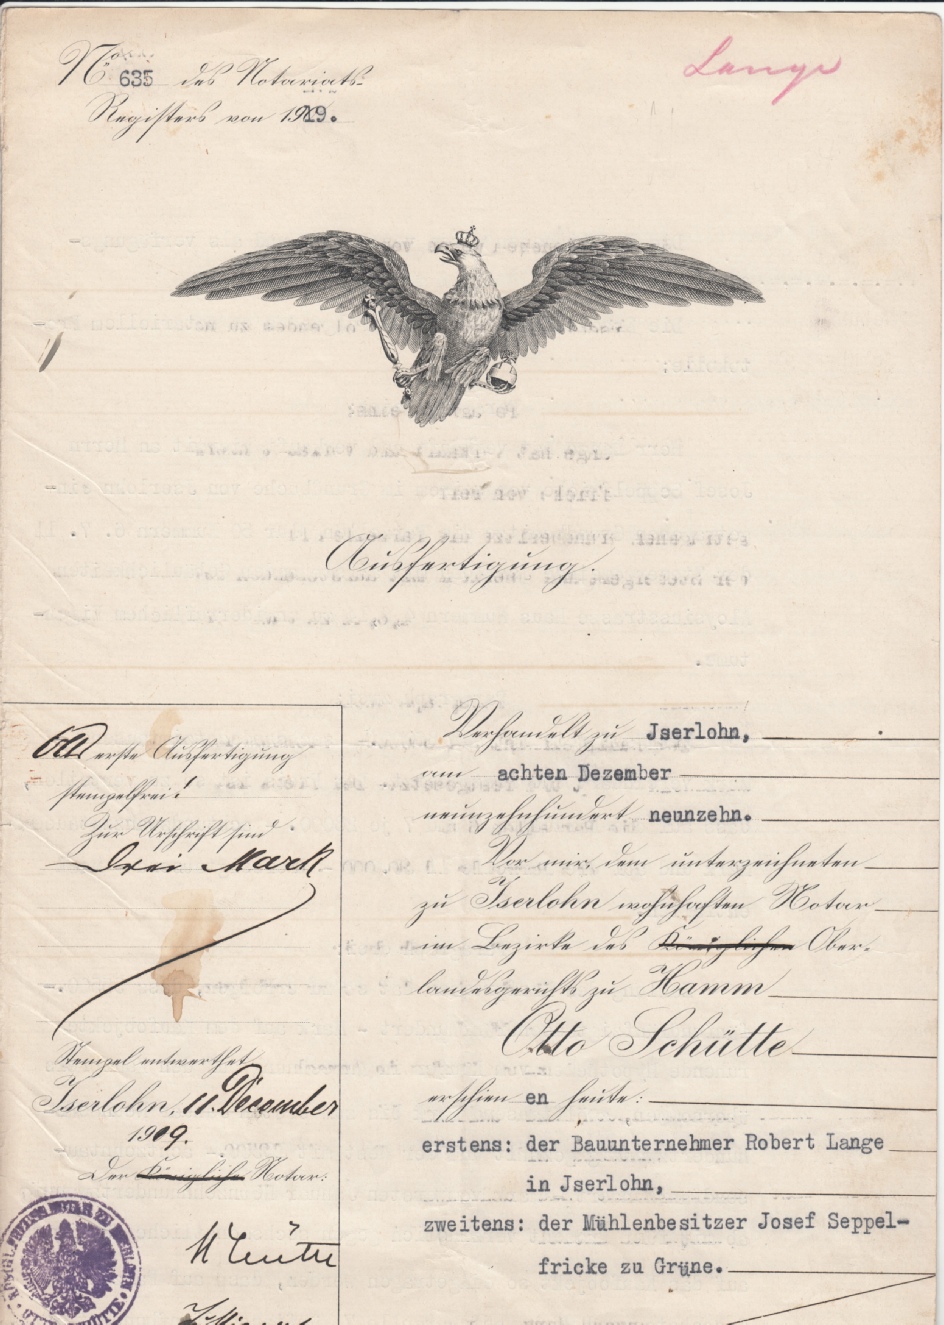 No 635 des Notariats-
Registers von 1919.
Lange
Ausfertigung.
erste Ausfertigung
stempelfrei!
Zur Urschrift sind
drei Mark
Stempel entwerthet
Iserlohn, 11. December
1919.
Der Königliche Notar:
Verhandelt zu Jserlohn,
am achten Dezember
neunzehnhundert neunzehn.
Vor mir, dem unterzeichneten
zu Iserlohn wohnhaften Notar
im Bezirke des Königlichen Ober-
landesgerichts zu Hamm
Otto Schütte
erschien en heute:
erstens: der Bauunternehmer Robert Lange
in Jserlohn,
zweitens: der Mühlenbesitzer Josef Seppel-
fricke zu Grüne.